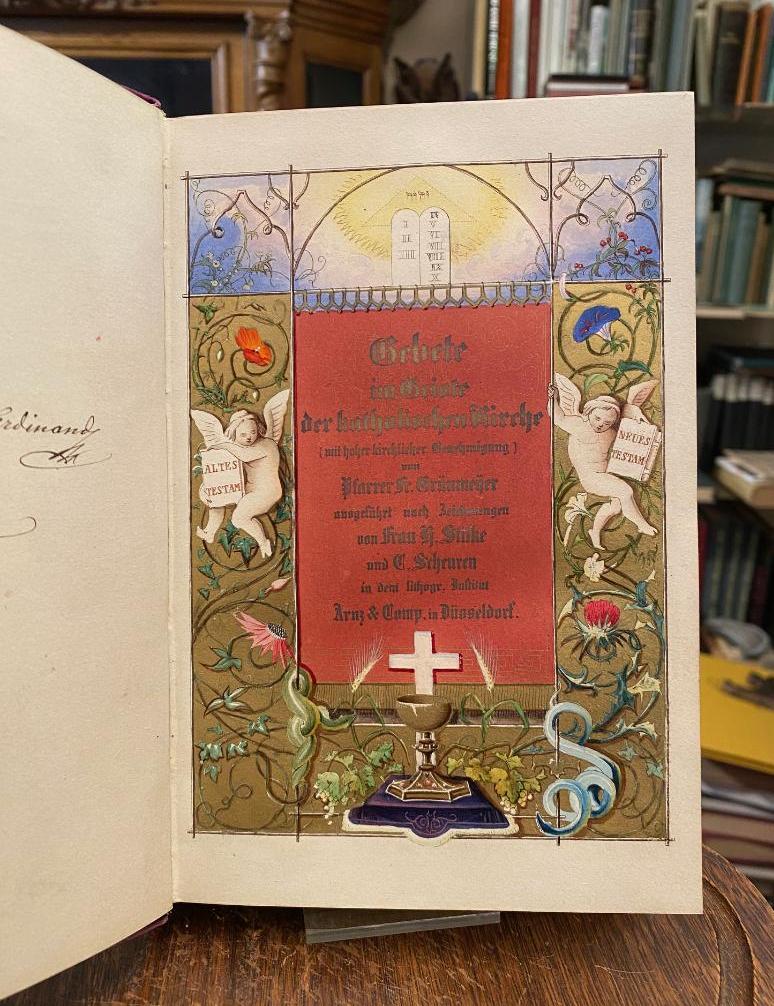 Ferdinand
I
II
III
IV
V
VI
VII
VIII
IX
X
Gebete
im Geiste
der katholischen Kirche
(mit hoher kirchlicher Genehmigung)
von
Pfarrer Fr. Grünmeÿer
ausgeführt nach Zeichnungen
von Frau H. Stilke
und C. Scheuren
in dem lithogr. Institut
Arnz & Comp. in Düsseldorf.
ALTES
TESTAM
NEUES
TESTAM.